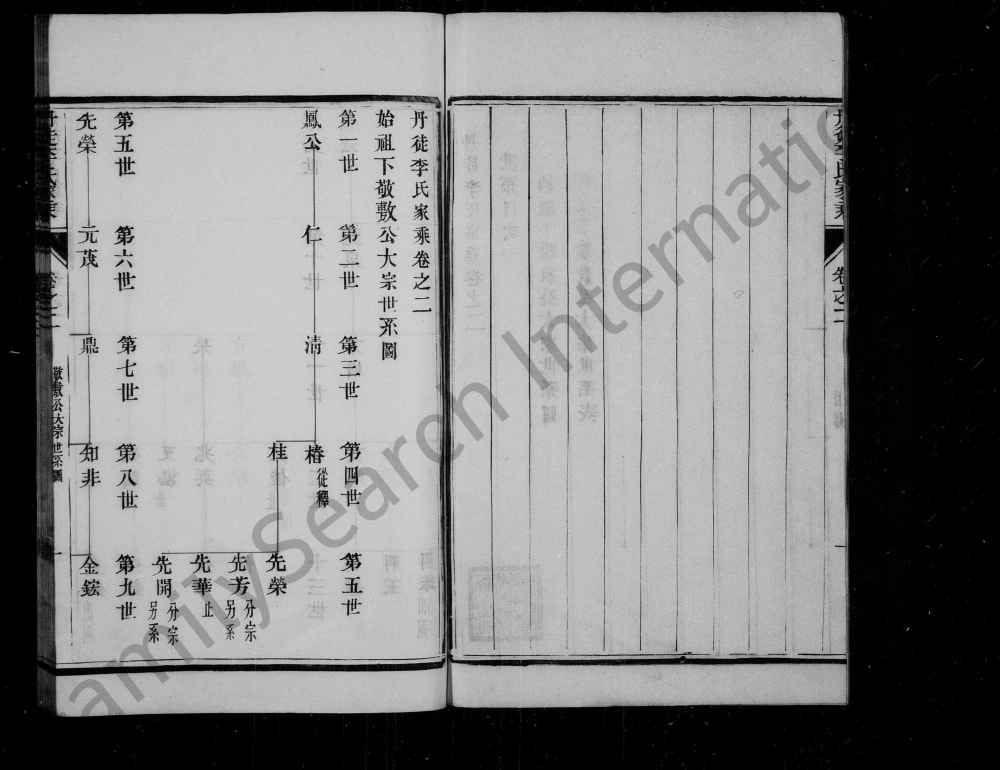 丹徒李氏家乘卷之二
始祖下敬敷公大宗世系圖
第一世 第二世 第三世 第四世 第五世
鳳公 仁 清 椿 從釋
桂 先榮
先芳 分宗 另系
先華 止
先開 分宗 另系
第五世 第六世 第七世 第八世 第九世
先榮 元茂 鼎 知非 金鋐
丹徒李氏家乘 卷之二 敬敷公大宗世系圖 一
丹徒李氏家乘 卷之二
FamilySearch International